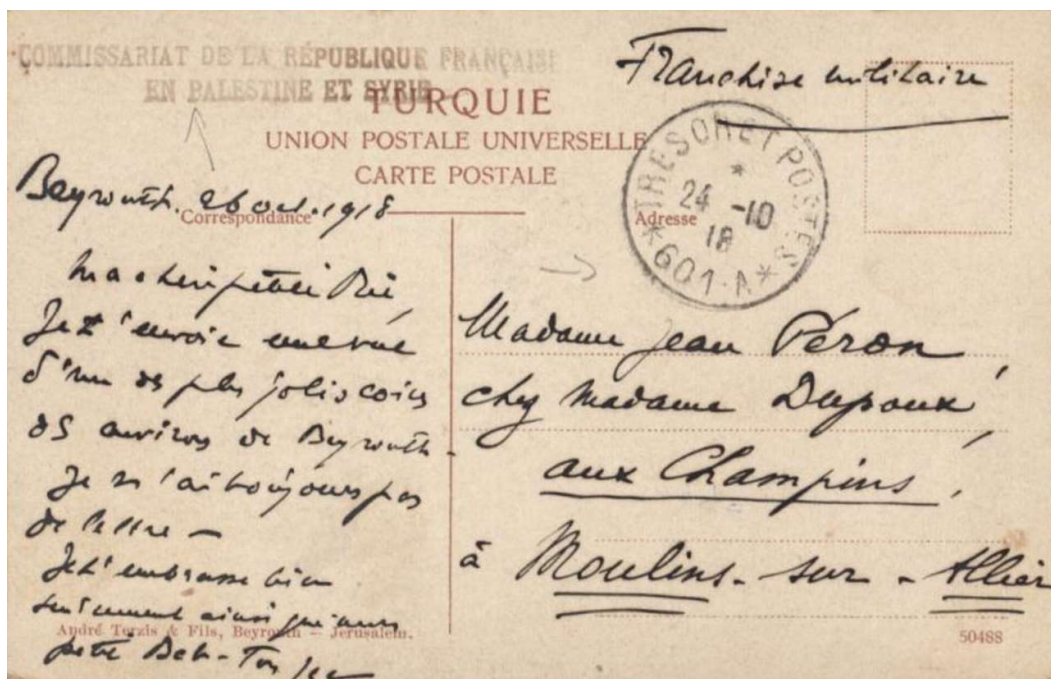 COMMISSARIAT DE LA RÉPUBLIQUE FRANÇAISE
EN PALESTINE ET SYRIE
Franchise militaire
TURQUIE
UNION POSTALE UNIVERSELLE
CARTE POSTALE
TRESOR ET POSTES
24 -10
18
*601·A*
Beyrouth. 26 oct. 1918
Correspondance
Adresse
ma chérie petite
Je t'envoie une vue
d'un des plus jolis coins
des environs de Beyrouth -
Je n'ai toujours pas
de lettre -
Je t'embrasse bien
tendrement ainsi que
petit
Madame Jean Péron,
chez Madame Dupoux,
aux Champins,
à Moulins - sur - Allier
André Terzis & Fils, Beyrouth - Jérusalem.
50488